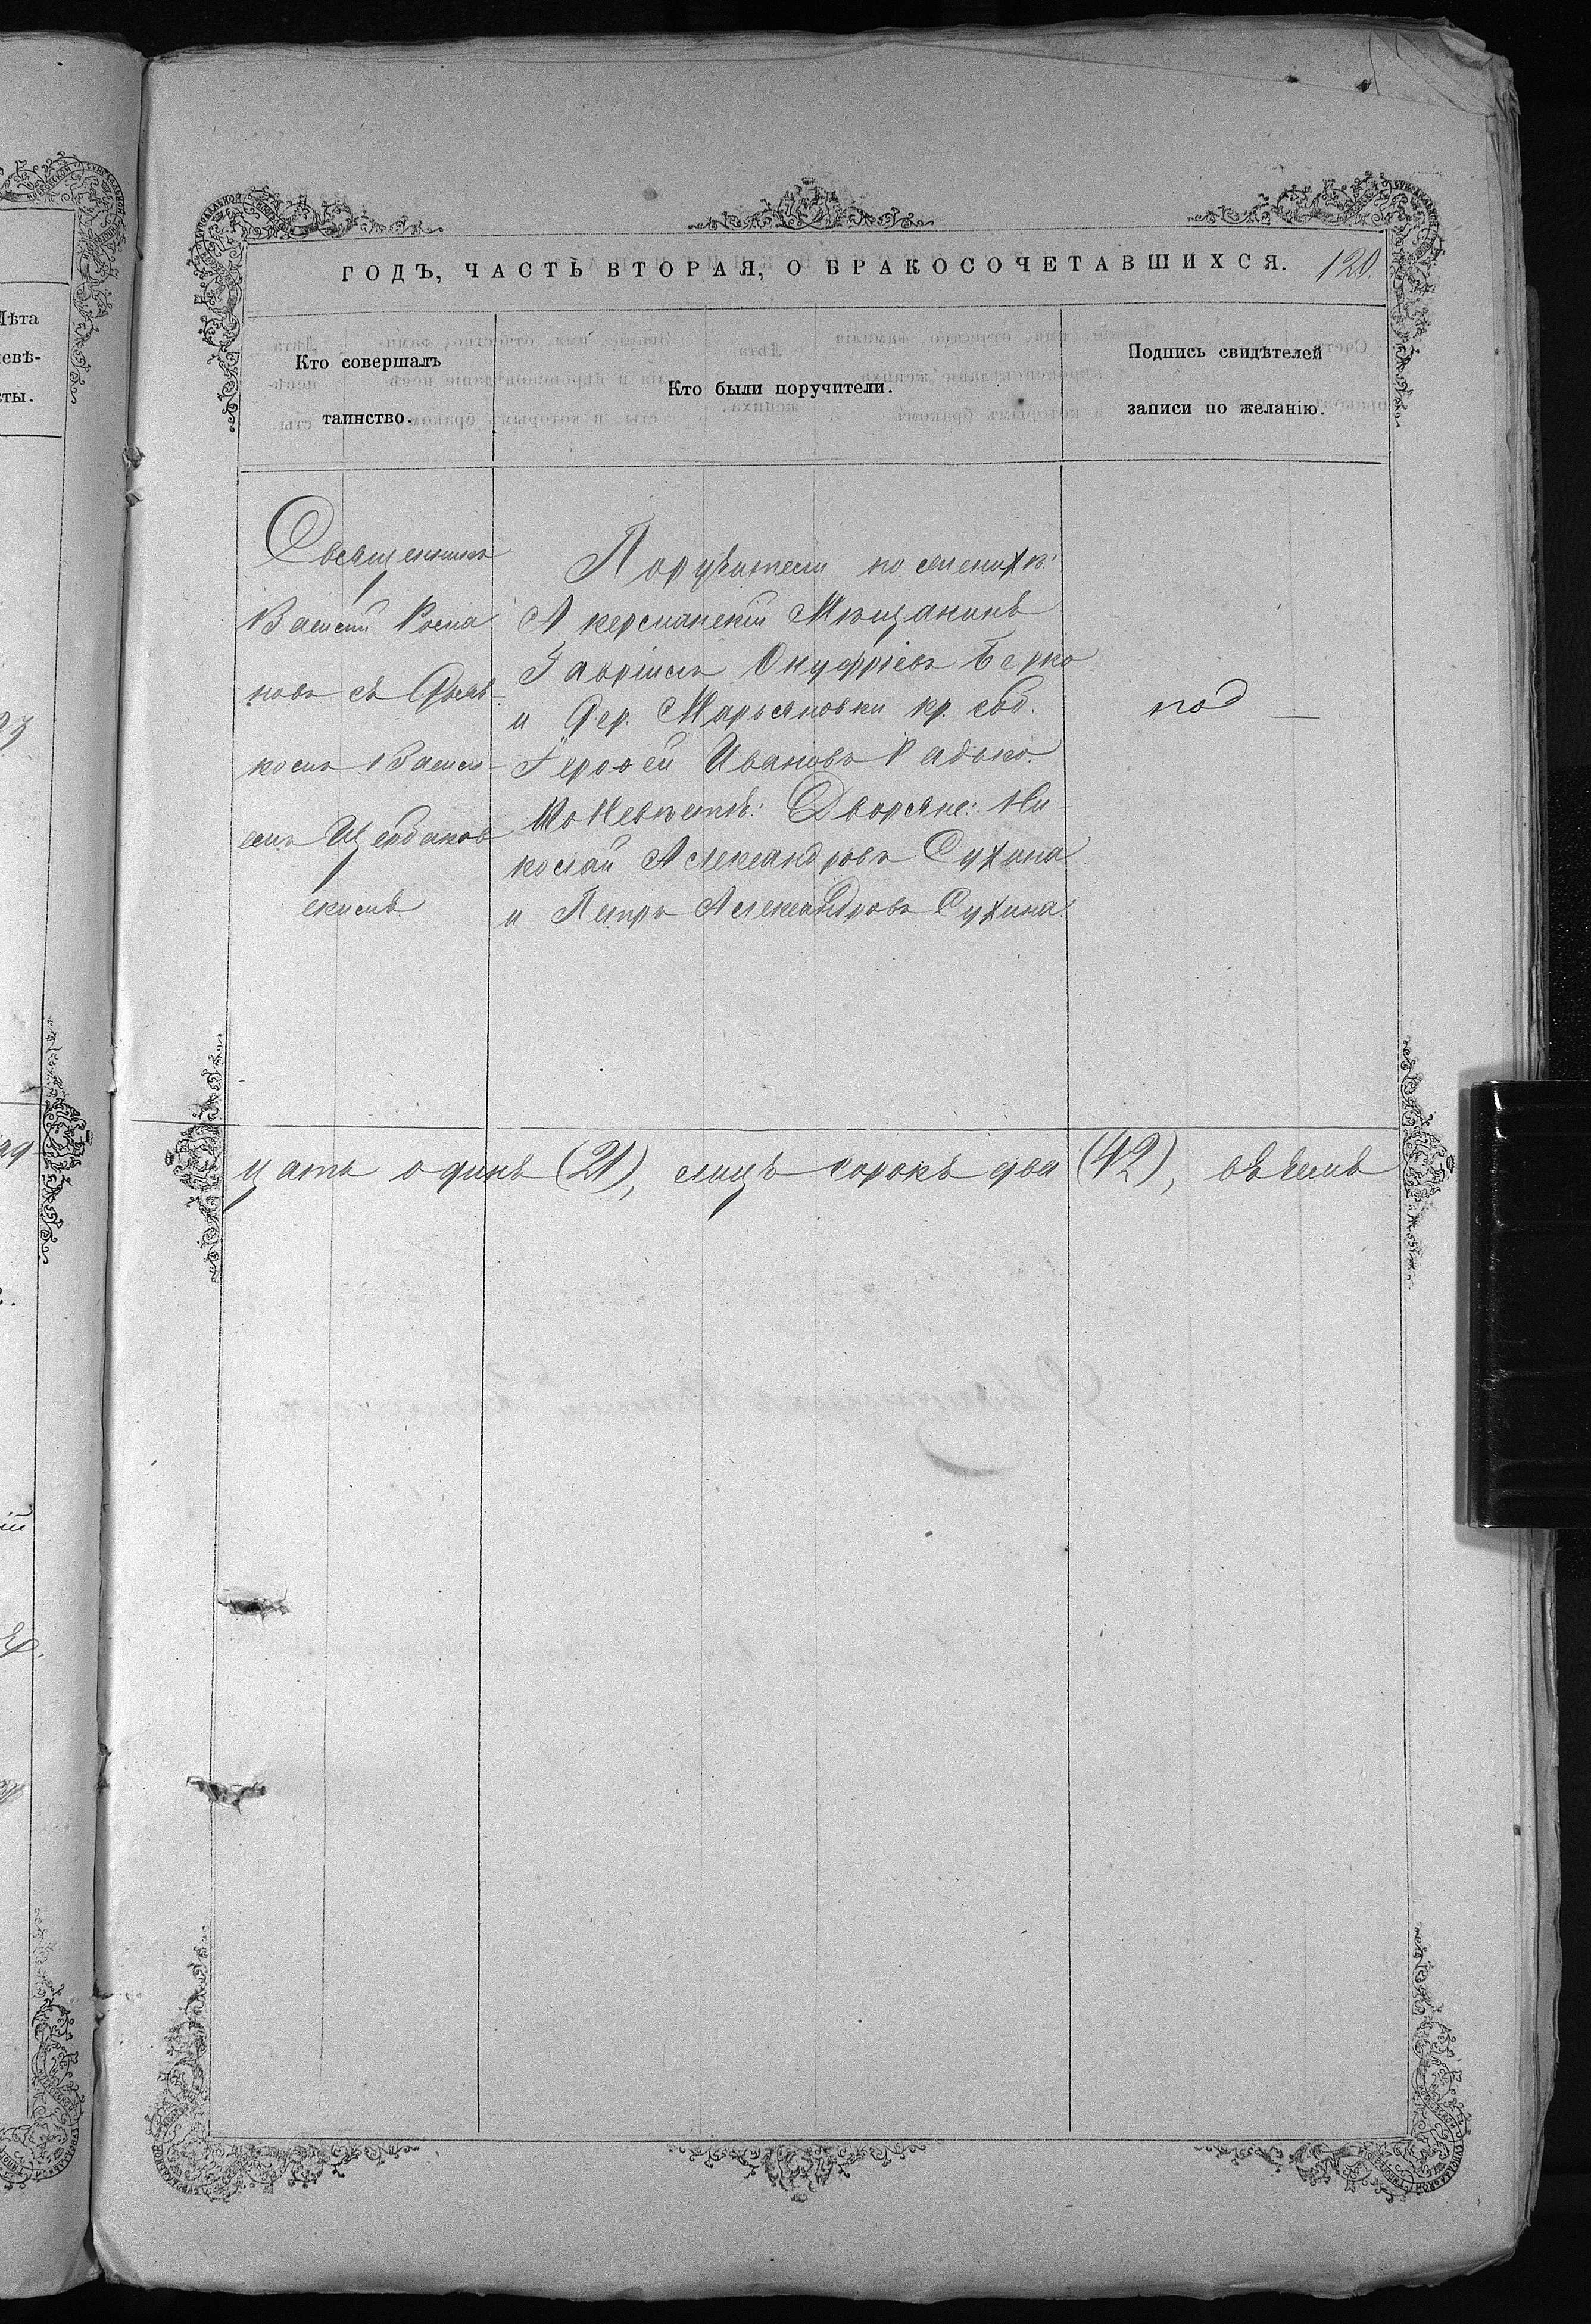 ГОДЪ, ЧАСТЬ ВТОРАЯ, О БРАКОСОЧЕТАВШИХСЯ. 120.
Кто совершалъ таинство.
Кто были поручители.
Подпись свидѣтелей записи по желанію.
Священникъ
Василій Рома
новъ съ Дьяч
комъ Васил
емъ Щербаков
скимъ
Поручители по женихѣ:
Акерманскій Мѣщанинъ
Гавріилъ Онуфріевъ Берко
и Дер. Марьяновки кр. соб.
Ерофей Ивановъ Радько.
По Невѣстѣ: Дворяне: Ни-
колай Александровъ Сухина
и Петръ Александровъ Сухина.
под —
цать одинъ (21), лицъ сорокъ два (42), въ чемъ
Лѣта
невѣ-
сты.